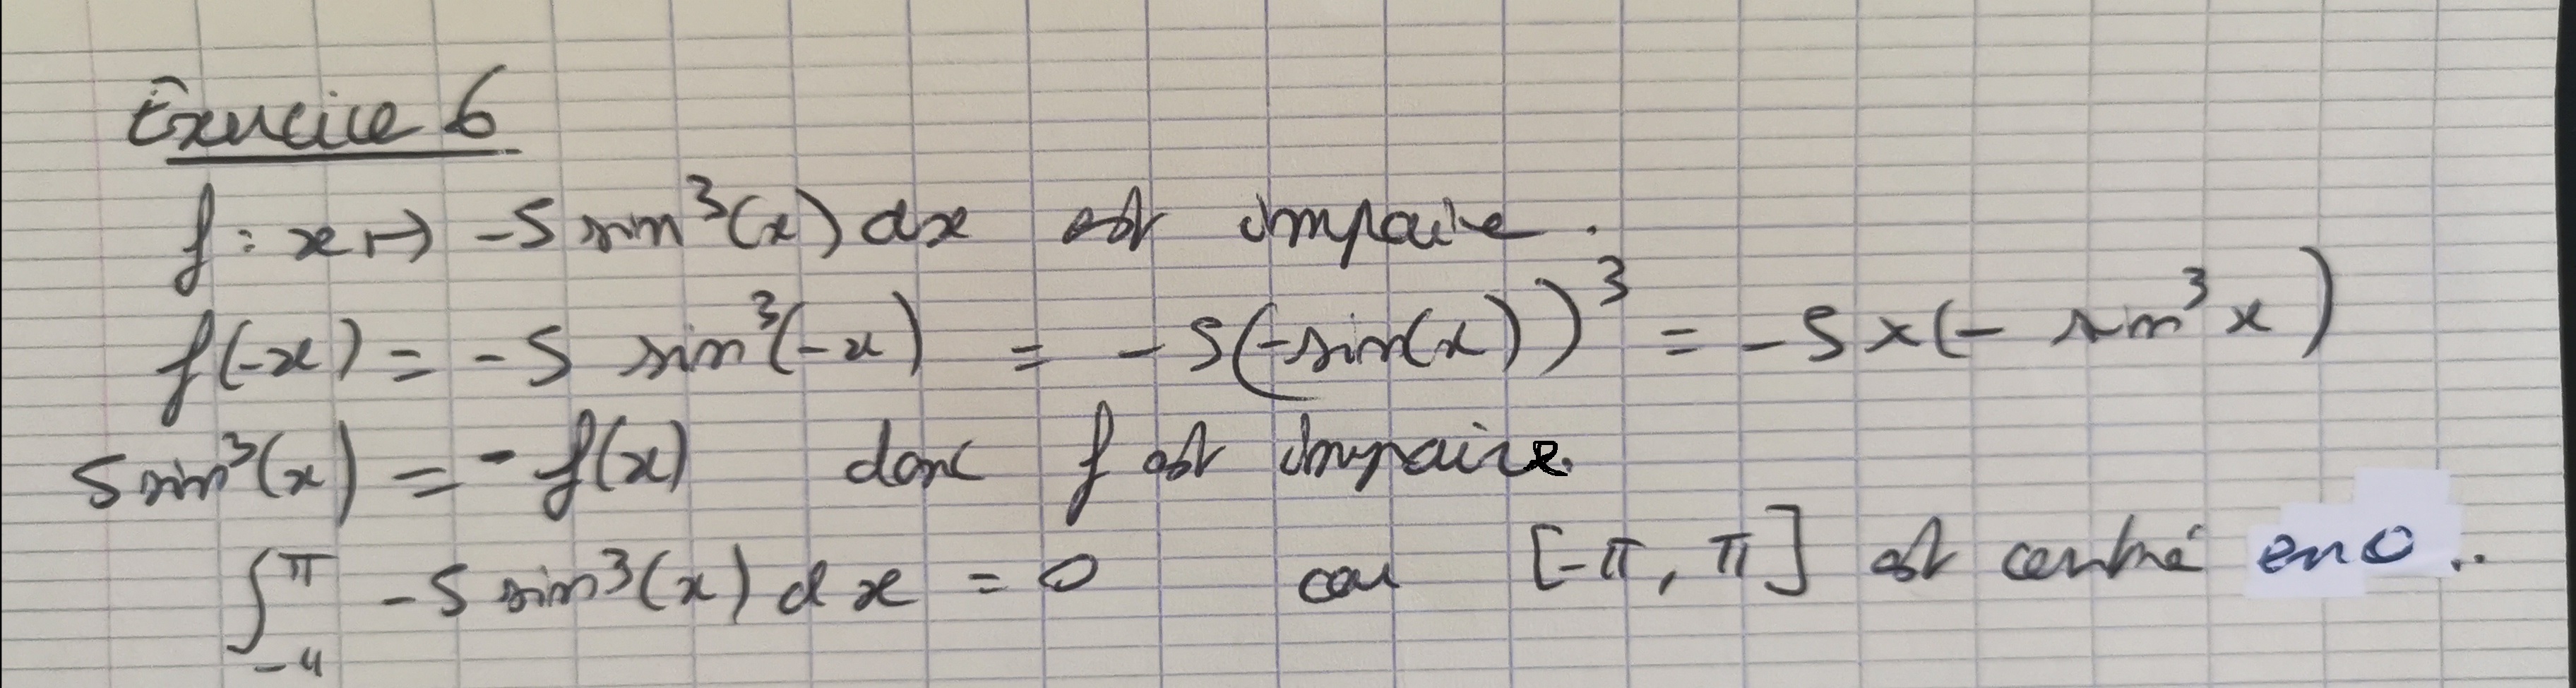 Exercice 6
f : x ↦ -5 sin³(x) dx est impaire.
f(-x) = -5 sin³(-x) = -5(-sin(x))³ = -5 x (- sin³ x)
5 sin³(x) = - f(x) donc f est impaire.
∫_{-4}^{π} -5 sin³(x) dx = 0 car [-π, π] est centré en 0..